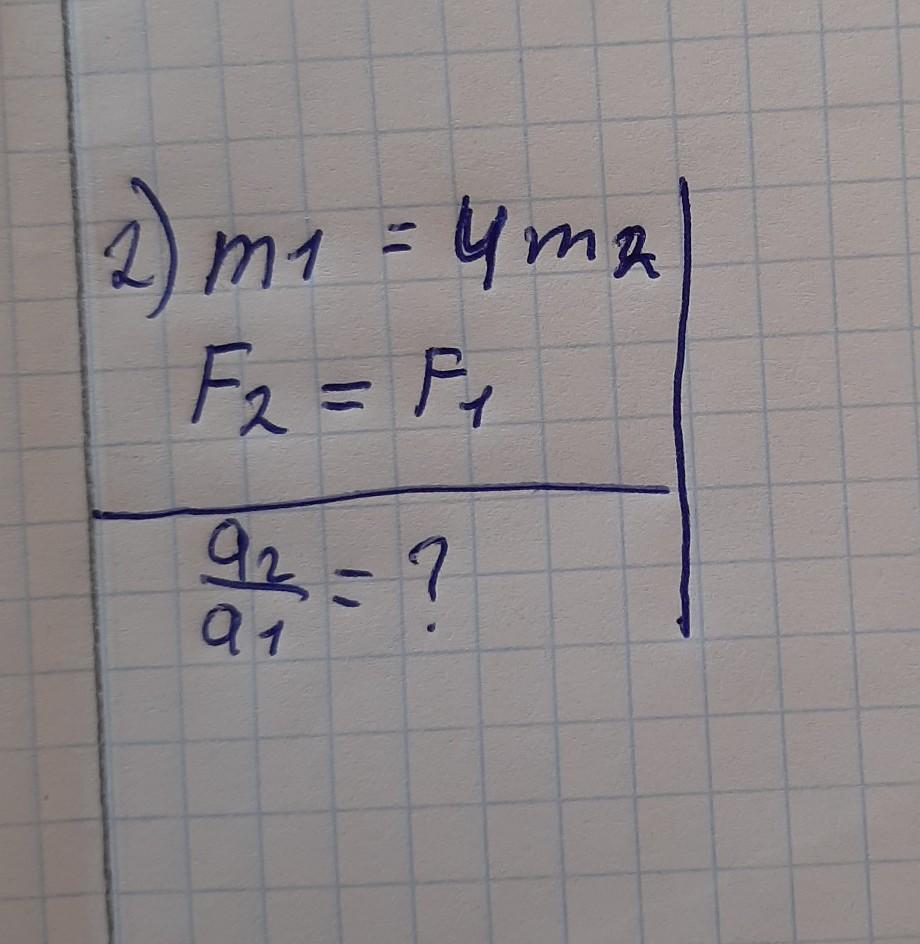 2) m1 = 4m2
F₂ = F₁
a₂/a₁ = ?